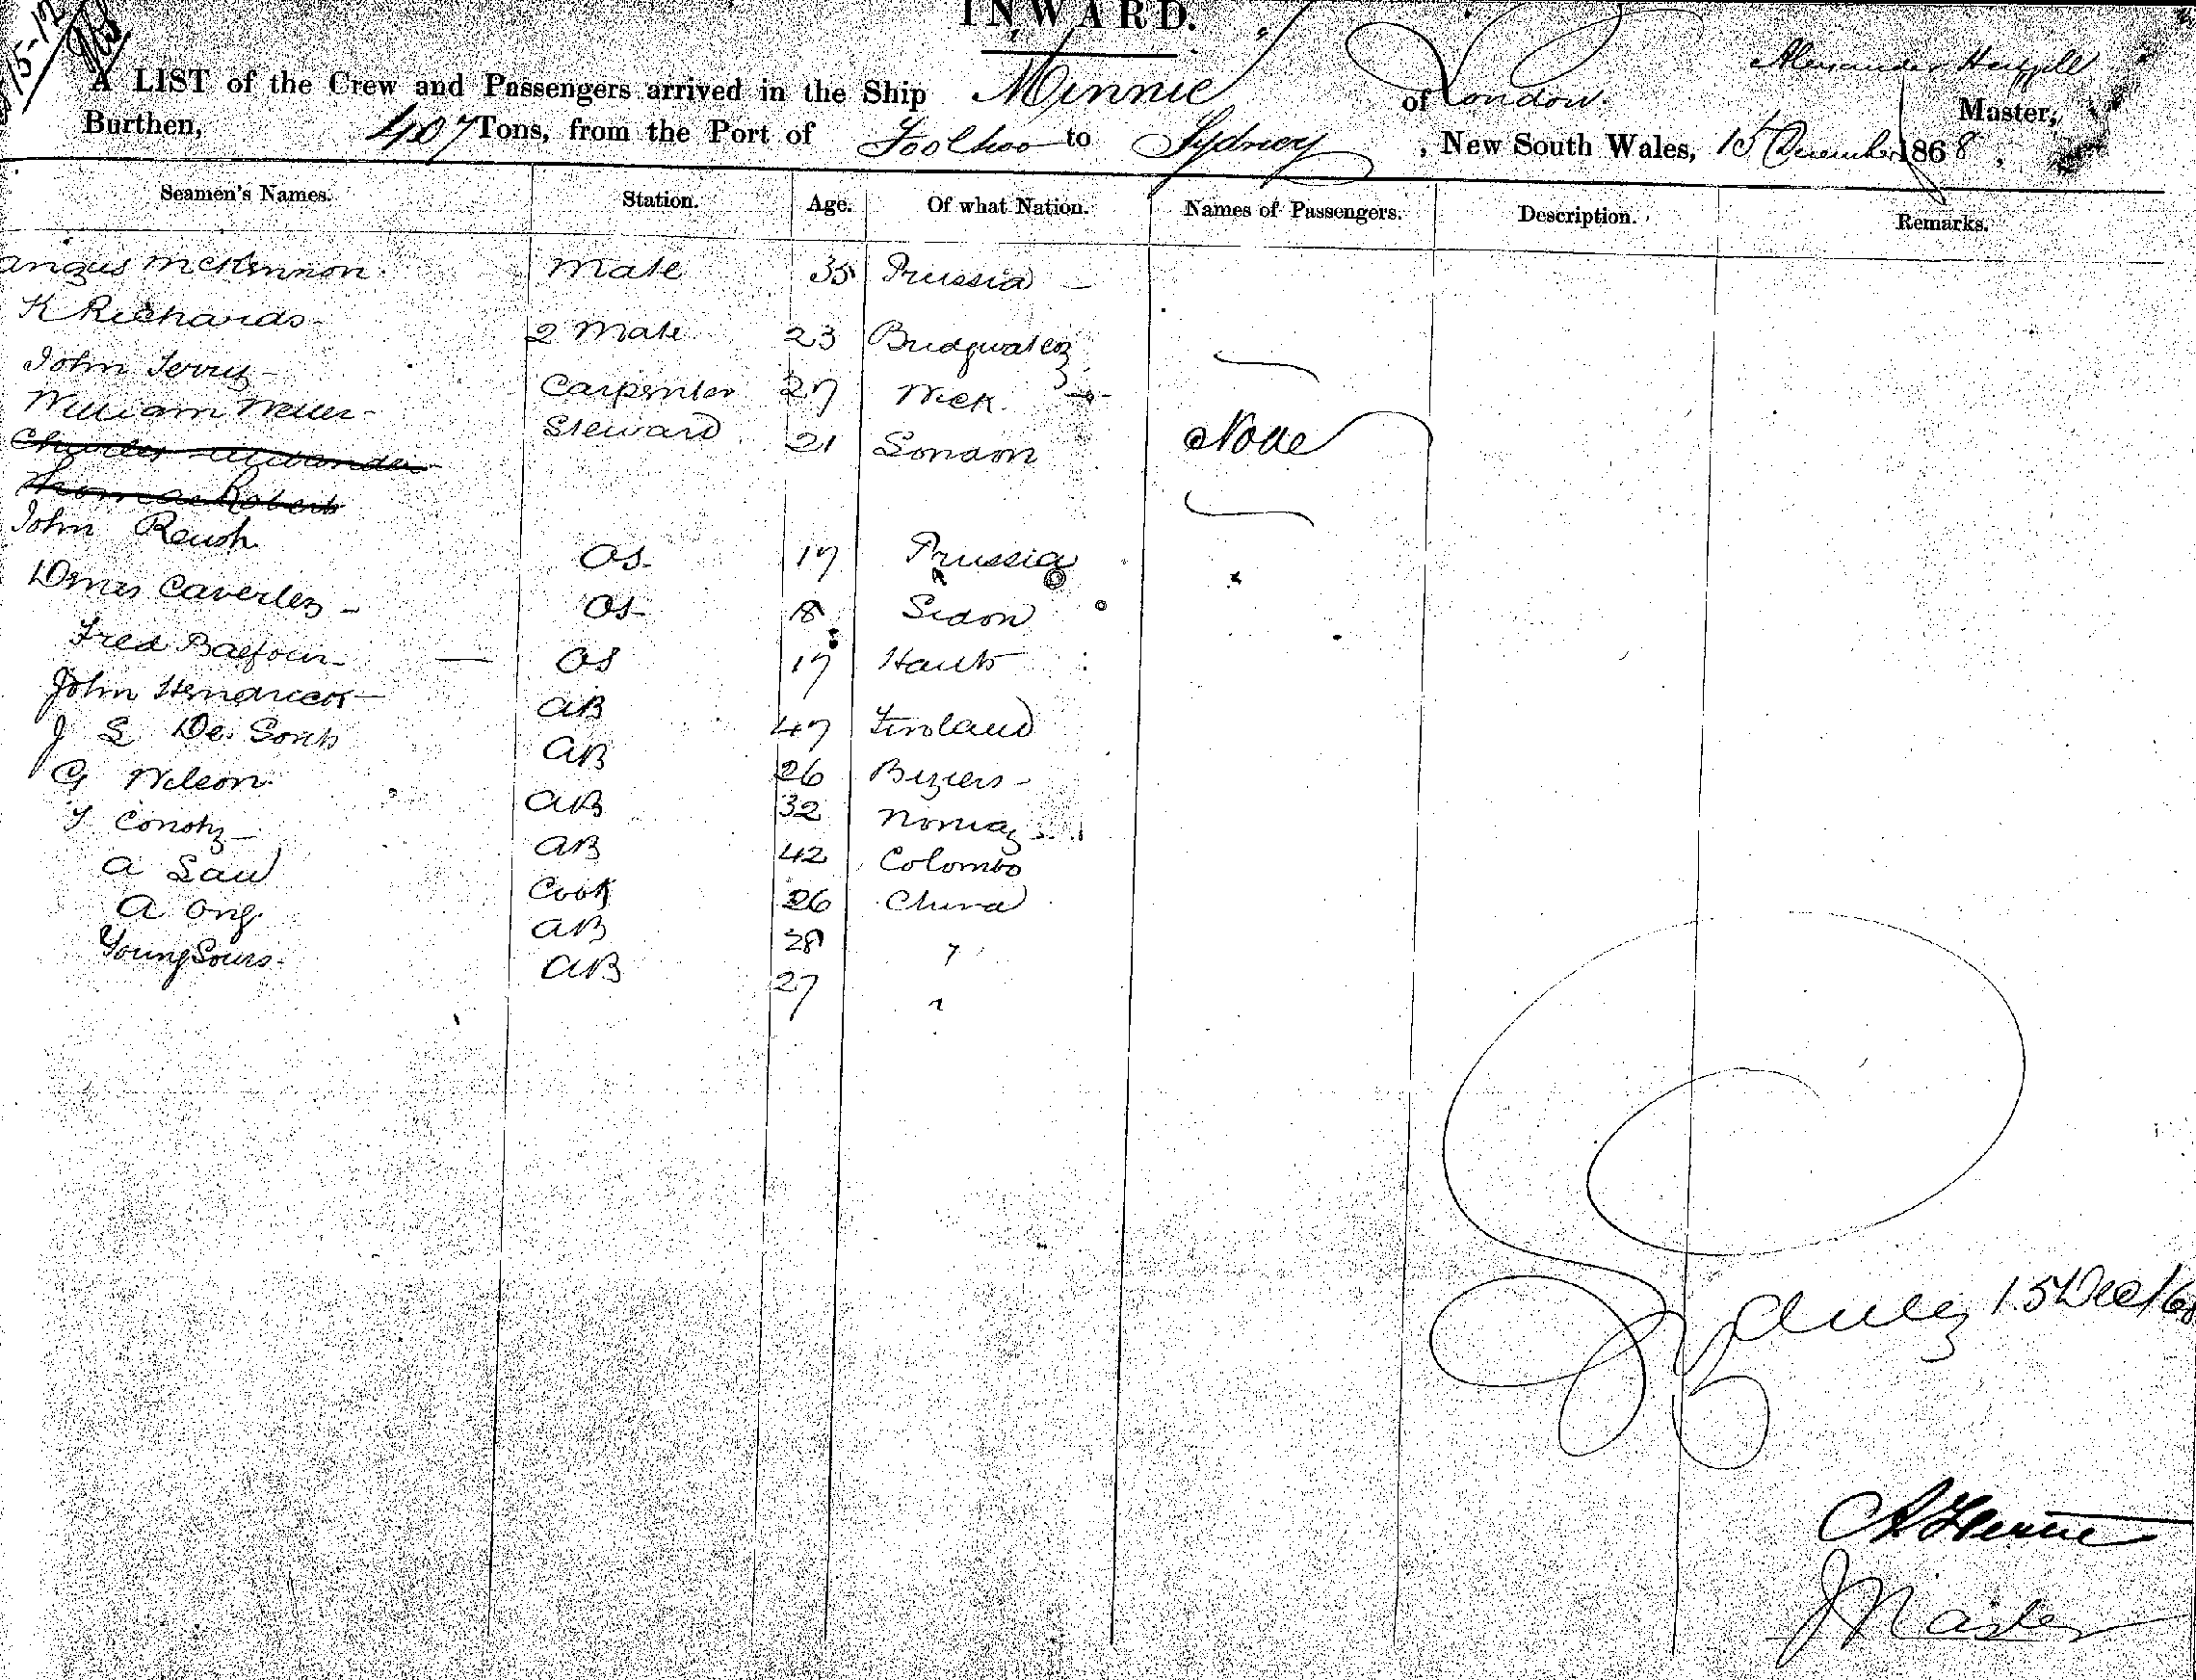 15-12
INWARD.
A LIST of the Crew and Passengers arrived in the Ship Minnie of London. Alexander Master,
Burthen, 407 Tons, from the Port of Foo Choo to Sydney, New South Wales, 15 December 1868.
Seamen's Names. Station. Age. Of what Nation. Names of Passengers. Description. Remarks.
Angus McKinnon Mate 35 Prussia
K Richards 2 Mate 23 Bridgwater
John Terry Carpenter 27 Wick
William Steward 21 London None
Charles Alexander
Thomas Roberts
John OS 17 Prussia
Caverley OS 18
Fred Balfour OS 17 Hants
John AB 47 Finland
J S De AB 26 Beziers
G Wilson AB 32 Norway
AB 42 Colombo
A Cook 26 China
A Ong AB 28 "
Young AB 27 "
Sydney 15 Dec/68
Master